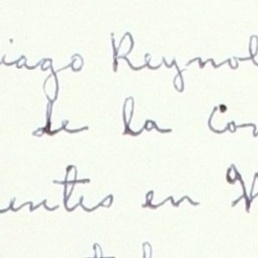 iago Reynol
de la Con
entes en V